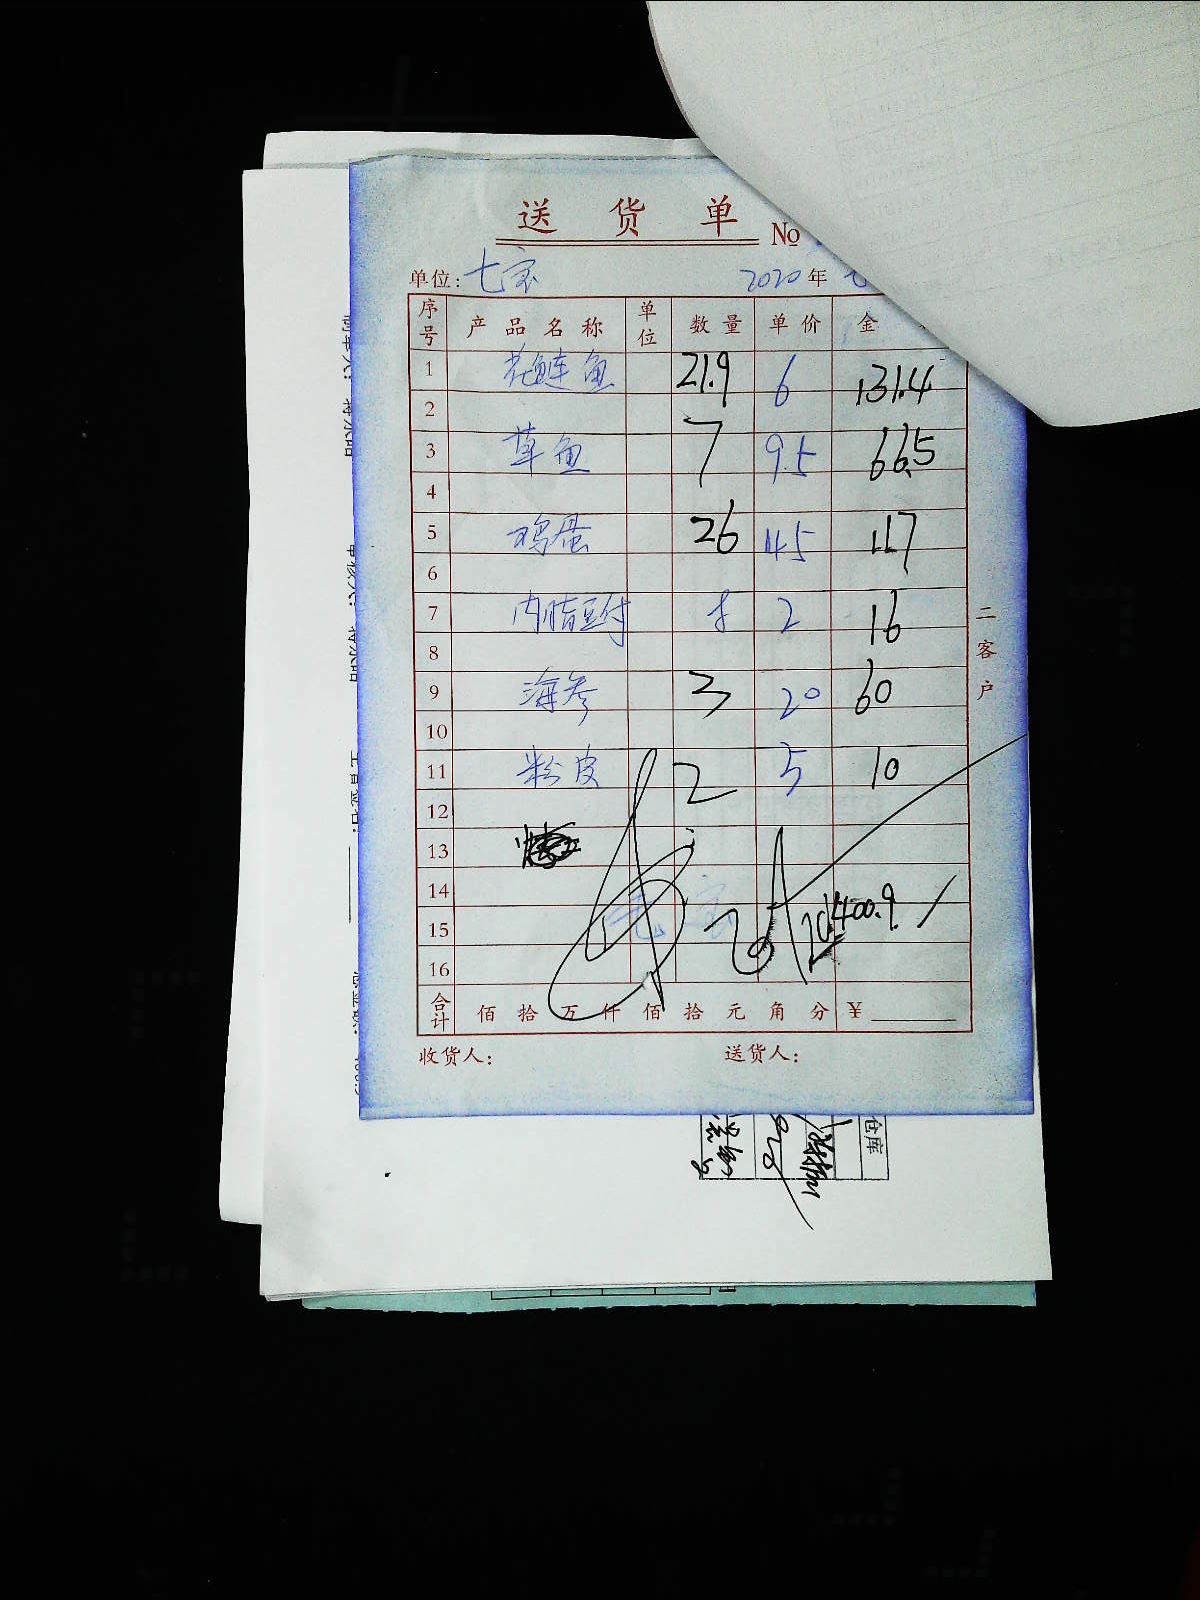 送货单 №
单位: 七宝 2020年
序号 产品名称 单位 数量 单价 金
1 花鲢鱼 21.9 6 131.4
2
3 草鱼 7 9.5 66.5
4
5 鸡蛋 26 4.5 117
6
7 内脂豆付 8 2 16
8
9 海参 3 20 60
10
11 粉皮 2 5 10
12
13
14
15 400.9
16
合计 佰拾万仟佰拾元角分 ¥
收货人: 送货人:
二客户
仓库